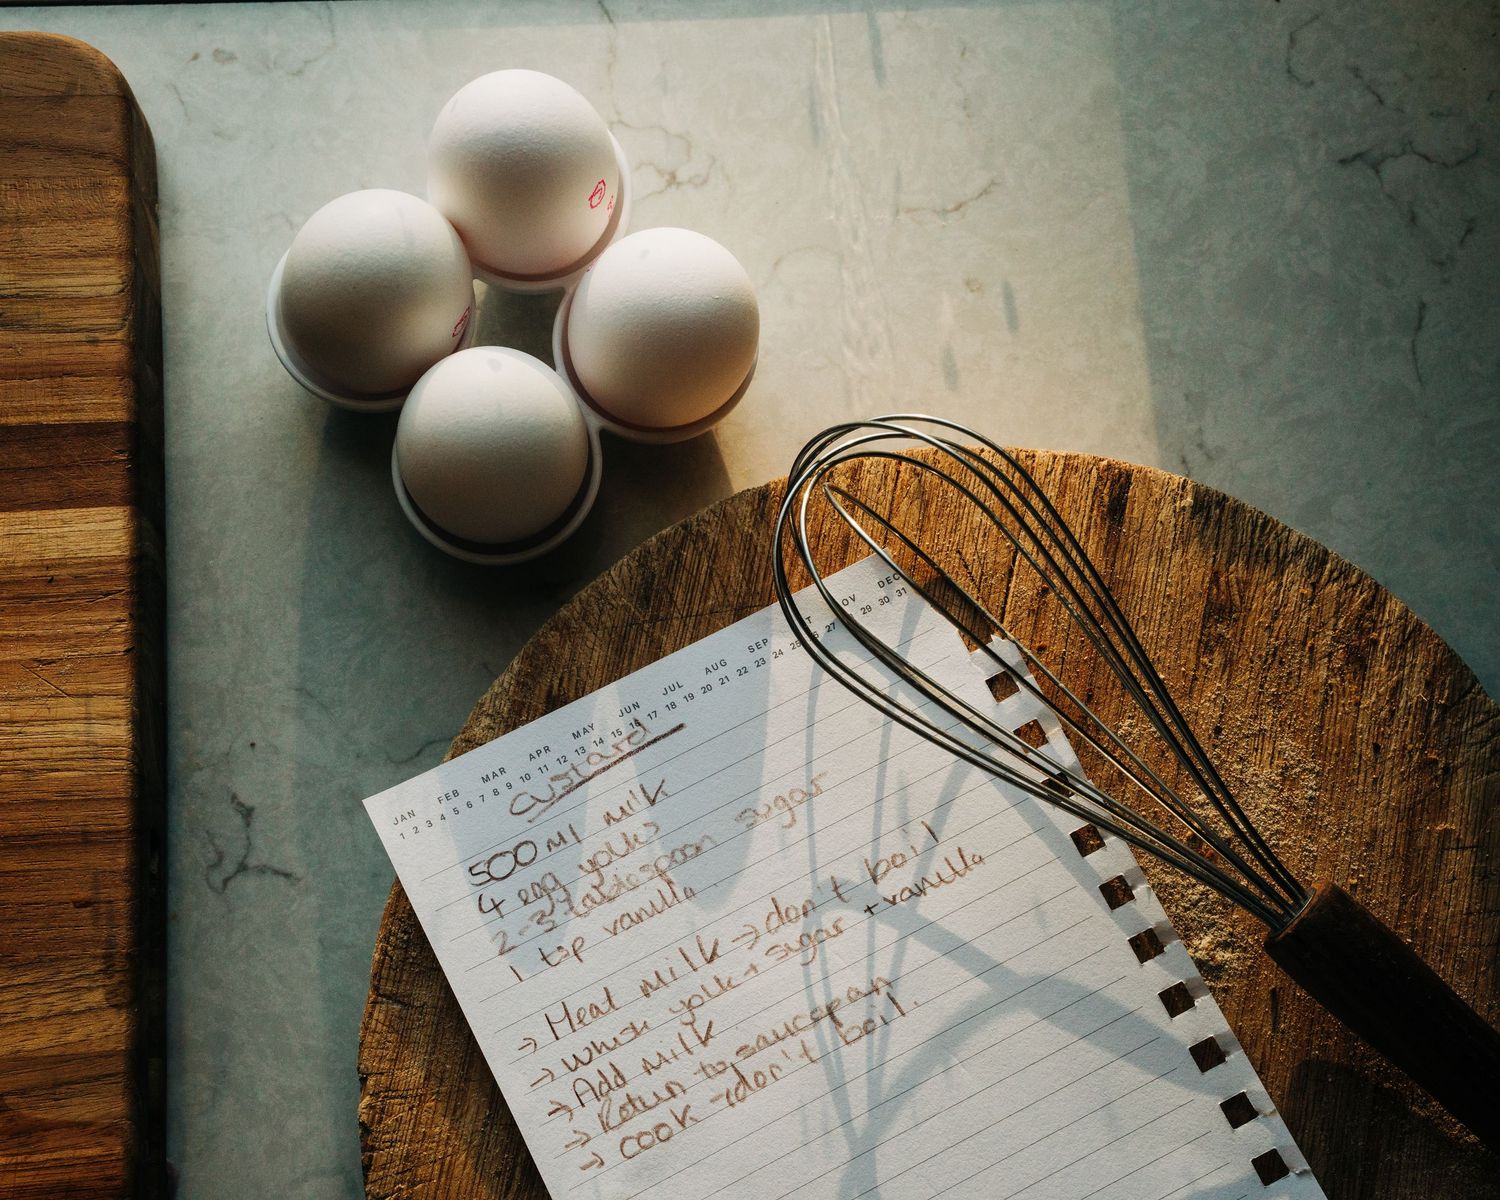 JAN FEB MAR APR MAY JUN JUL AUG SEP OV DEC
1 2 3 4 5 6 7 8 9 10 11 12 13 14 15 16 17 18 19 20 21 22 23 24 25 27 29 30 31
Custard
500 ml milk
4 egg yolks
2-3 tablespoon sugar
1 tsp vanilla
→ Heat milk → don't boil
→ Whisk yolk + sugar + vanilla
→ Add milk
→ Return to saucepan
→ cook → don't boil.